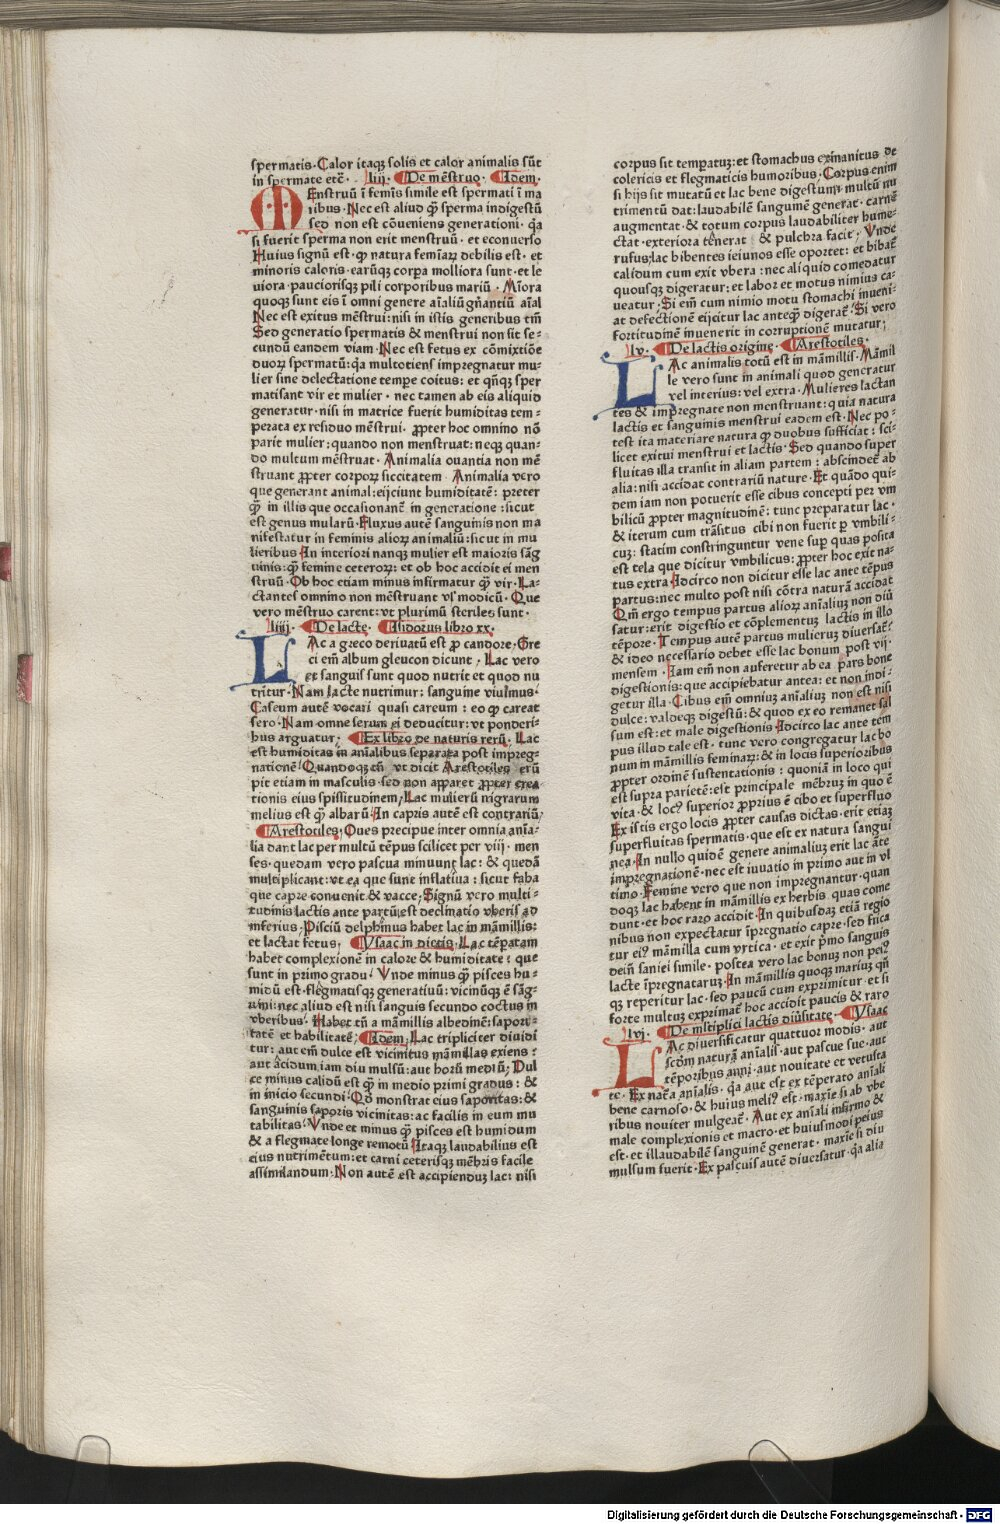 spermatis·Calor itaqꝫ solis et calor animalis sũt
in spermate etc̃· liij· De mẽstruo· Idem·
MEnstruũ ĩ femĩs simile est spermati ĩ ma
ribus·Nec est aliud qꝫ̃ sperma indigestũ
sed non est cõueniens generationi· q̃a
si fuerit sperma non erit menstruũ· et econuerso
Huius signũ est· ꝙ natura femĩaꝝ debilis est· et
minoris caloris·earũqꝫ corpa molliora sunt·et le
uiora·pauciorisqꝫ pili corporibus mariũ· Mĩora
quoqꝫ sunt eis ĩ omni genere aĩaliũ gñantiũ aĩal
Nec est exitus mẽstrui:nisi in istis generibus tm̃
Sed generatio spermatis & menstrui non sit se⸗
cundũ eandem viam·Nec est fetus ex cõmixtiõe
duoꝝ spermatũ:q̃a multotiens impregnatur mu⸗
lier sine delectatione tempe coitus: et qñqꝫ sper
matisant vir et mulier· nec tamen ab eis aliquid
generatur·nisi in matrice fuerit humiditas tem⸗
perata ex residuo mẽstrui· ꝓpter hoc omnino nõ
parit mulier:quando non menstruat:neqꝫ quan⸗
do multum mẽstruat· Animalia ouantia non mẽ
struant ꝓpter corpoꝝ siccitatem Animalia vero
que generant animal:eijciunt humiditatẽ: preter
qꝫ̃ in illis que occasionanẽ in generatione:sicut
est genus mularũ·Fluxus autẽ sanguinis non ma
nifestatur in feminis alioꝝ animaliũ:sicut in mu
lieribus·In interiori nanqꝫ mulier est maioris sãg
uinis:qꝫ̃ femine ceteroꝝ: et ob hoc accidit ei men
struũ·Ob hoc etiam minus infirmatur qꝫ̃ vir·La⸗
ctantes omnino non mẽstruant vl̃ modicũ·Que
vero mẽstruo carent:vt plurimũ steriles sunt·
liiij· De lacte· Isidorus libro xx·
LAc a greco deriuatũ est ꝓ candore·Gre
ci em̃ album gleucon dicunt· Lac vero
et sanguis sunt quod nutrit et quod nu
tritur·Nam lacte nutrimur: sanguine viuimus·
Caseum autẽ vocari quasi careum: eo ꝙ careat
sero·Nam omne serum ei deducitur:vt ponderi⸗
bus arguatur; Ex libro de naturis rerũ· Lac
est humiditas in aĩalibus separata post impreg⸗
nationẽ·Quandoqꝫ tñ vt dicit Arestotiles erũ
pit etiam in masculis·sed non apparet ꝓpter crea
tionis eius spissitudinem;Lac mulierũ nigrarum
melius est qꝫ̃ albarũ·In capris autẽ est contrariũ;
Arestotiles; Oues precipue inter omnia anĩa⸗
lia dant lac per multũ tẽpus scilicet per viij· men
ses·quedam vero pascua minuunt lac: & quedã
multiplicant:vt ea que sunt inflatiua: sicut faba
que capre conuenit & vacce;Signũ vero multi⸗
tudinis lactis ante partũ,est declinatio vberis ad
inferius·Pisciũ delphinus habet lac in mãmillis:
et lactat fetus; Ysaac in dietis;Lac tẽpatam
habet complexionẽ in calore & humiditate: que
sunt in primo gradu· Vnde minus qꝫ̃ pisces hu⸗
midũ est·flegmatisqꝫ generatiuũ: vicinũqꝫ ẽ sãg⸗
uini:nec aliud est nisi sanguis secundo coctus in
vberibus· Habet tñ a mãmillis albedinẽ:sapori⸗
tatẽ et habilitatẽ; Idem;Lac tripliciter diuidi
tur: aut em̃ dulce est vicinitus mãmillas exiens:
aut acidum,iam diu mulsũ:aut horũ mediũ; Dul
ce minus calidũ est qꝫ̃ in medio primi gradus: &
in inicio secundi·Qđ monstrat eius saporitas:&
sanguinis saporis vicinitas:ac facilis in eum mu
tabilitas·Vnde et minus qꝫ̃ pisces est humidum
& a flegmate longe remotũ·Itaqꝫ laudabilius est
eius nutrimẽtum:et carni ceterisqꝫ mẽbris facile
assimilandum·Non autẽ est accipienduꝫ lac: nisi
corpus sit tempatuꝫ:et stomachus exĩnanitus de
colericis et flegmaticis humoribus·Corpus enim
si hijs sit mutatũ et lac bene digestum: multũ nu
trimentũ dat:laudabilẽ sanguinẽ generat· carnẽ
augmentat·& totum corpus laudabiliter hume⸗
ctat·exteriora tẽnerat & pulchra facit; Vnde
rufus;lac bibentes ieiunos esse oportet: et bibat̃
calidum cum exit vbera:nec aliquid comedatur
quousqꝫ digeratur:et labor et motus nimius ca⸗
ueatur;Si em̃ cum nimio motu stomachi inueni⸗
at defectionẽ eijcitur lac anteqꝫ̃ digerat̃·Si vero
fortitudinẽ inuenerit in corruptionẽ mutatur;
lv· De lactis origine· Arestotiles·
LAc animalis totũ est in mãmillis·Mãmil
le vero sunt in animali quod generatur
vel interius:vel extra·Mulieres lactan
tes & impregnate non menstruant:quia natura
lactis et sanguinis menstrui eadem est·Nec po⸗
test ita materiare natura ꝙ duobus sufficiat: sci⸗
licet exitui menstrui et lactis·Sed quando super
fluitas illa transit in aliam partem: abscindet̃ ab
alia:nisi accidat contrariũ nature·Et quãdo qui⸗
dem iam non potuerit esse cibus concepti per vm
bilicũ ꝓpter magnitudinẽ: tunc preparatur lac·
& iterum cum trãsitus cibi non fuerit ꝑ vmbili⸗
cuꝫ: statim constringuntur vene suꝑ quas posita
est tela que dicitur vmbilicus: ꝓpter hoc exit na⸗
tus extra·Idcirco non dicitur esse lac ante tẽpus
partus:nec multo post nisi cõtra naturã accidat
Qm̃ ergo tempus partus alioꝝ anĩaliuꝫ non diũ
satur:erit digestio et cõplementuꝫ lactis in illo
tẽpore·Tempus autẽ partus mulieruꝫ diuersat̃:
& ideo necessario debet esse lac bonum post vij·
mensem·Iam em̃ non auferetur ab ea pars bone
digestionis:que accipiebatur antea: et non indi⸗
getur illa·Cibus em̃ omniuꝫ anĩaliuꝫ non est nisi
dulce:valdeqꝫ digestũ:& quod ex eo remanet sal
sum est:et male digestionis·Idcirco lac ante tem
pus illud tale est· tunc vero congregatur lac bo
num in mãmillis feminaꝝ:& in locis superioribus
ꝓpter ordinẽ sustentationis: quoniã in loco qui
est supra parietẽ:est principale mẽbruꝫ in quo ẽ
vita·& locꝰ superior ꝓprius ẽ cibo et superfluo
Ex istis ergo locis ꝓpter causas dictas·erit etiaꝫ
superfluitas spermatis·que est ex natura sangui
nea·In nullo quidẽ genere animaliuꝫ erit lac ãte
impregnationẽ·nec est iuuatio in primo aut in vl
timo·Femine vero que non impregnantur·quan
doqꝫ lac habent in mãmillis ex herbis quas come
dunt·et hoc raro accidit·In quibusdaꝫ etiã regio
nibus non expectatur ĩpregnatio capre·sed frica
tur eiꝰ mãmilla cum vrtica·et exit p̃mo sanguis
dein̄ saniei simile· postea vero lac bonuꝫ non peiꝰ
lacte ĩpregnataruꝫ·In mãmillis quoqꝫ mariuꝫ qñ
qꝫ reperitur lac·sed paucũ cum exprimitur·et si
forte multuꝫ exprimat̃ hoc accidit paucis & raro
lvj· De ml̃tiplici lactis diũsitate· Ysaac
LAc diuersificatur quattuor modis· aut
scđm naturã anĩalis·aut pascue sue·aut
tẽporibus anni·aut nouitate et vetusta
te· Ex nat̃a anĩalis· q̃a aut est ex tẽperato anĩali
bene carnoso·& huius meliꝰ est·maxĩe si ab vbe
ribus nouiter mulgeat̃· Aut ex anĩali infirmo &
male complexionis et macro·et huiusmodi peius
est·et illaudabilẽ sanguinẽ generat·maxĩe si diu
mulsum fuerit·Ex pascuis autẽ diuersatur·q̃a alia
Digitalisierung gefördert durch die Deutsche Forschungsgemeinschaft - DFG